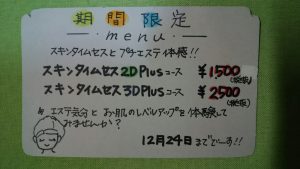 期間限定
menu
スキンタイムセスとプチエステ体感!!
スキンタイムセス2DPlusコース ¥1500(税抜)
スキンタイムセス3DPlusコース ¥2500(税抜)
エステ気分とお肌のレベルアップを体験して
みませんか?
12月24日まででーす!!